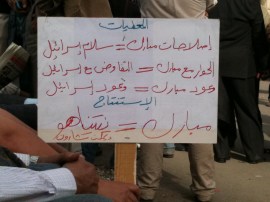 المعطيات
إصلاحات مبارك = سلام إسرائيل
الحوار مع مبارك = التفاوض مع إسرائيل
وعود مبارك = وعود إسرائيل
الإستنتاج
مبارك = نتنياهو